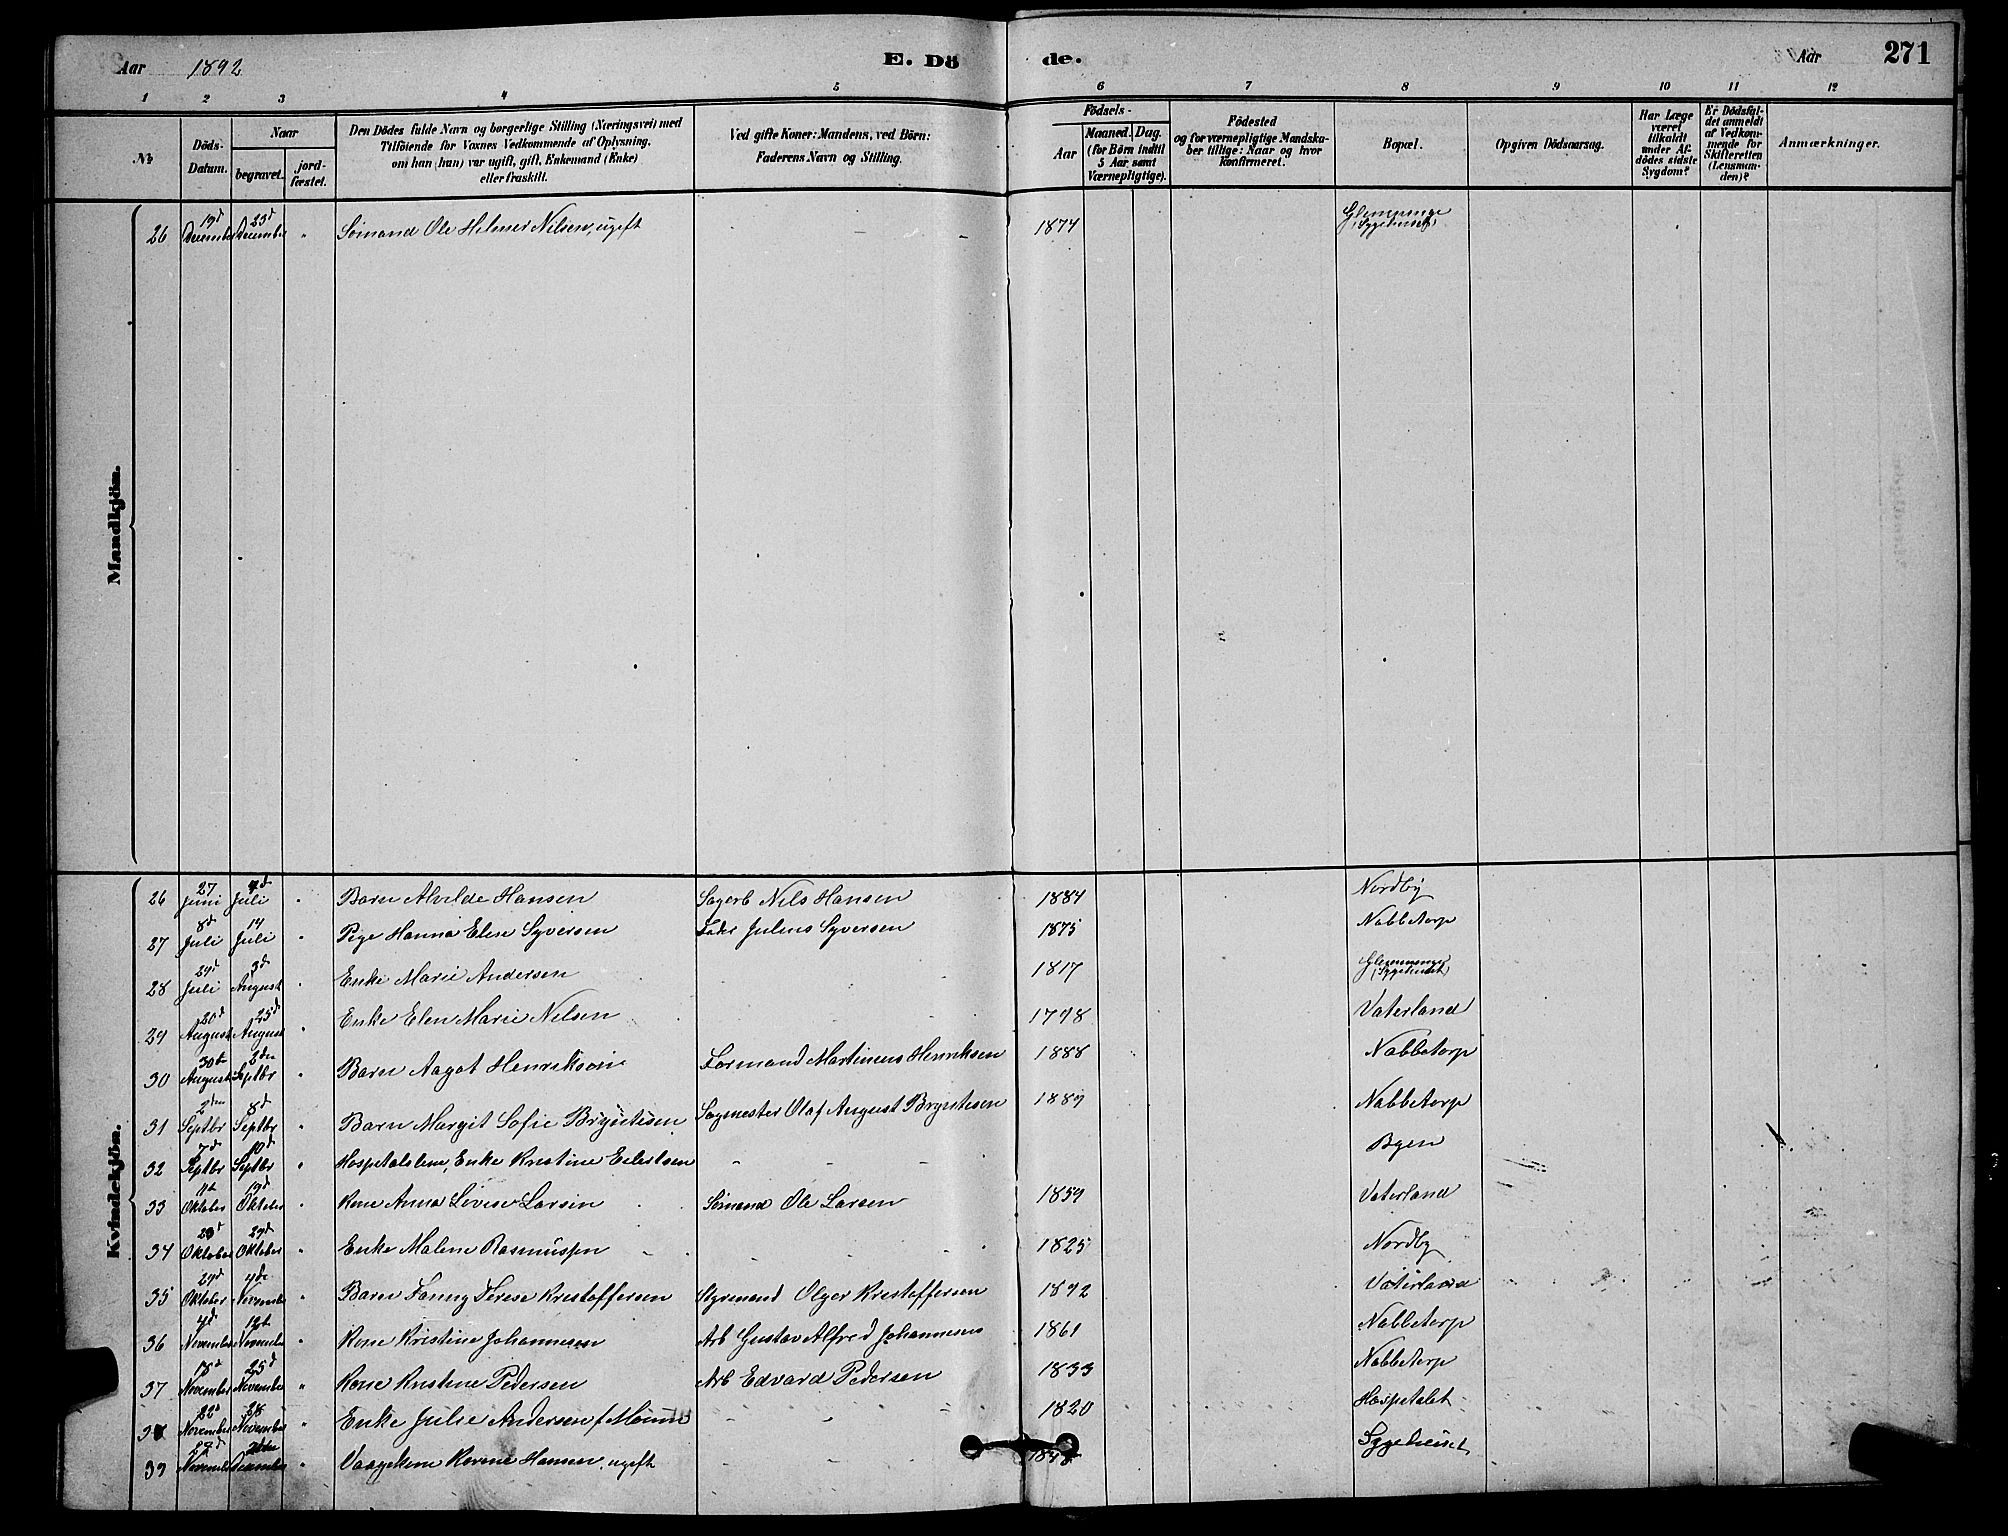 Aar 1892 E. Dö de. Aar 271
1 2 3 4 5 6 7 8 9 10 11 12
№
Döds-
Datum.
Naar
begravet.
jord-
fæstet.
Den Dödes fulde Navn og borgerlige Stilling (Næringsvei) med
Tilföiende for Voxnes Vedkommende af Oplysning,
om han (hun) var ugift, gift, Enkemand (Enke)
eller fraskilt.
Ved gifte Koner: Mandens, ved Börn:
Faderens Navn og Stilling.
Födsels-
Aar
Maaned. Dag.
(for Börn indtil
5 Aar samt
Værnepligtige).
Födested
og for værnepligtige Mandska-
ber tillige: Naar og hvor
konfirmeret.
Bopæl.
Opgiven Dödsaarsag.
Har Læge
været
tilkaldt
under Af-
dödes sidste
Sygdom?
Er Dödsfal-
det anmeldt
af Vedkom-
mende for
Skifteretten
(Lensman-
den)?
Anmærkninger.
Mandkjön.
26 19d December 23d December " Sømand Ole Helmer Nilsen, ugift - - 1874 Glemminge (Sygehuset)
Kvindekjön.
26 27 Juni 4d Juli " Barn Alvilde Hansen Sagarb Nils Hansen 1884 Nordby
27 8d Juli 14 Juli " Pige Hanna Elise Syversen Fader Julius Syversen 1875 Nabbetorp
28 29d Juli 3d August " Enke Marie Andersen 1817 Glemminge (Sygehuset)
29 20d August 25d August " Enke Elen Marie Nilsen 1798 Vaterland
30 30te August 2den Septbr " Barn Aagot Henriksen Formand Martinius Henriksen 1888 Nabbetorp
31 2den Septbr 8d Septbr " Barn Margit Sofie Bryntesen Sagmester Olaf August Bryntesen 1889 Nabbetorp
32 7d Septbr 10d Septbr " Hospitalslem, Enke Kristine Eilertsen - - - Byen
33 Oktober 19d Oktober " Kone Anna Lovise Larsen Sømand Ole Larsen 1859 Vaterland
34 23d Oktober 29d Oktober " Enke Malene Rasmussen - - 1825 Nordby
35 29d Oktober 4de November " Barn Fanny Terese Kristoffersen Styrmand Olger Kristoffersen 1892 Vaterland
36 4d November 12te November " Kone Kristine Johannesen Arb Gustav Alfred Johannesen 1861 Nabbetorp
37 18d November 25d November " Kone Kristine Pedersen Arb Edvard Pedersen 1833 Nabbetorp
38 22d November 28 November " Enke Julie Andersen f. - - - 1820 Hospitalet
39 27d November December " Karine Hansen, ugift Sygehuset